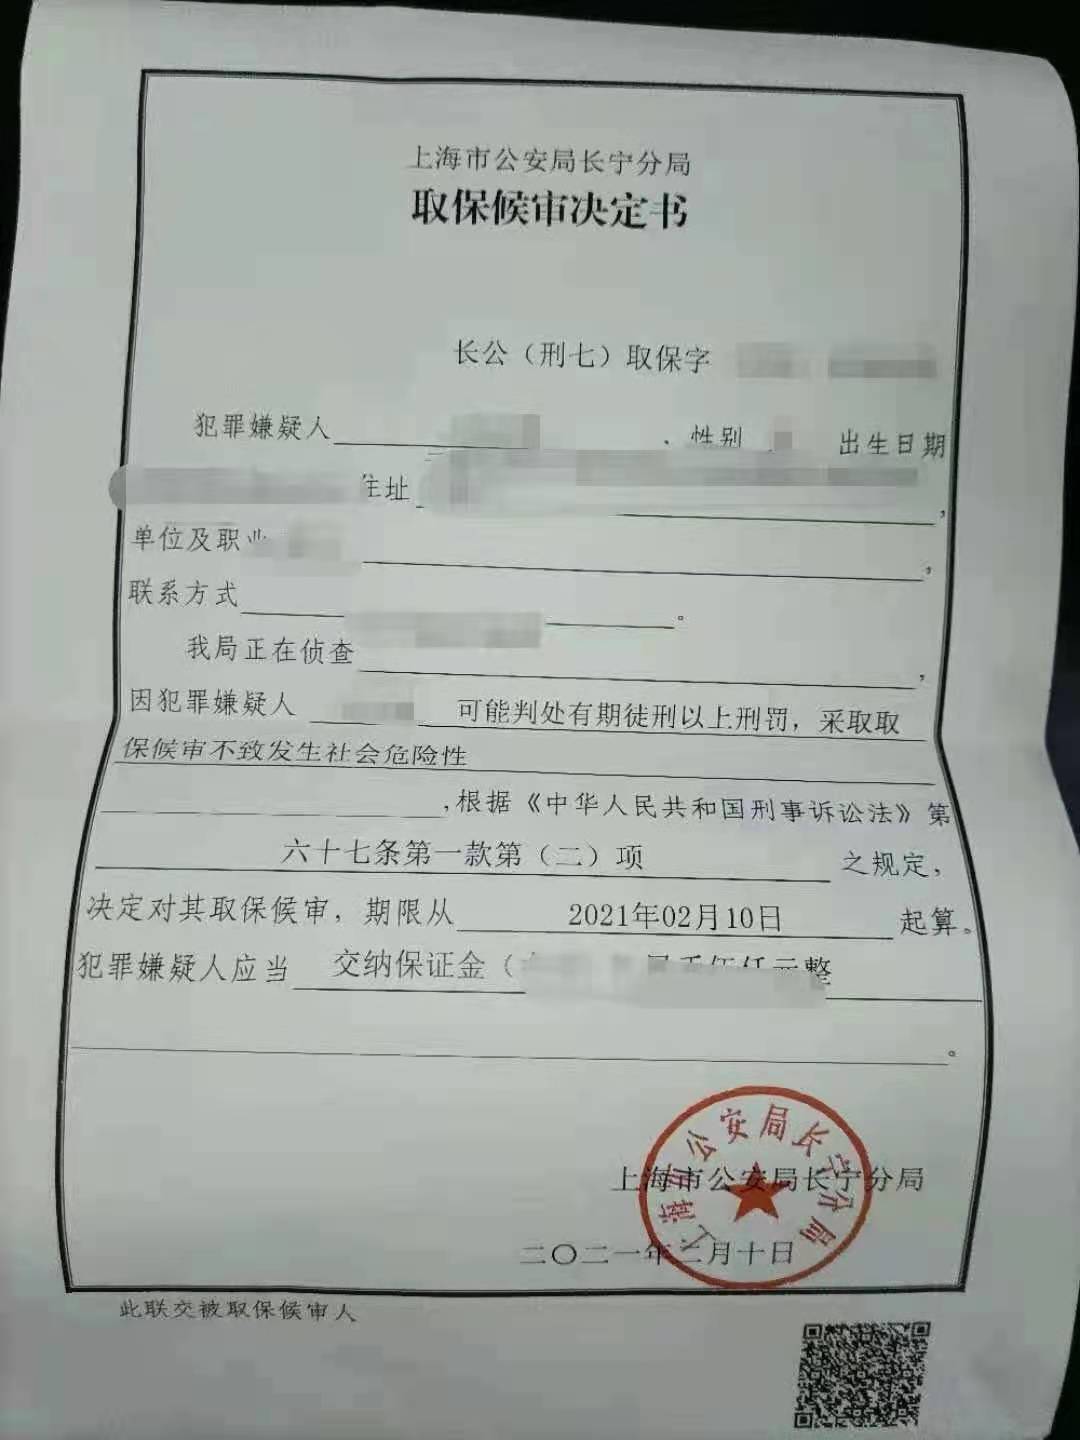 上海市公安局长宁分局
取保候审决定书
长公（刑七）取保字
犯罪嫌疑人 、性别 出生日期
住址 ，
单位及职业 ，
联系方式 。
我局正在侦查 ，
因犯罪嫌疑人 可能判处有期徒刑以上刑罚，采取取
保候审不致发生社会危险性
,根据《中华人民共和国刑事诉讼法》第
六十七条第一款第（二）项 之规定，
决定对其取保候审，期限从 2021年02月10日 起算。
犯罪嫌疑人应当 交纳保证金（ 元整
。
上海市公安局长宁分局
上海市公安局长宁分局
二〇二一年二月十日
此联交被取保候审人